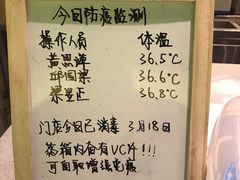 今日防疫监测
操作人员 体温
黄思泽 36.5℃
邱国梁 36.6℃
梁昱正 36.8℃
门店今日已消毒 3月18日
药箱内备有VC片!!!
可自取增强免疫